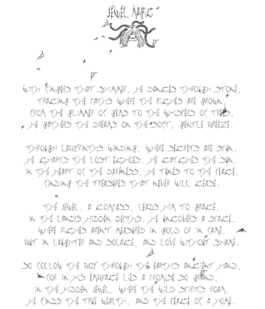 JEWEL MAGIC
WITH FINGERS THAT SHIMMER, HE DANCES THROUGH STONE,
TRACING THE PATHS WHERE THE RICHES ARE GROWN,
FROM THE GLIMMER OF GEMS TO THE WHISPERS OF TREES,
HE GATHERS THE DREAMS ON THE SOFT, GENTLE BREEZE.
THROUGH LABYRINTHS WINDING, WHERE SECRETS ARE SPUN,
HE THE LOST ECHOES, HE CATCHES THE SUN,
IN THE HEART OF THE DARKNESS, HE TUNES TO THE PEACE,
FINDING THE TREASURES THAT NEVER WILL CEASE.
THE JEWEL, A COMPASS, LEADS HIM TO GRACE,
IN THE LANDS HIDDEN DEPTHS, HE UNCOVERS A SPACE,
WHERE RICHES AREN'T MEASURED IN GOLD OR IN FAME,
BUT IN LAUGHTER AND SOLACE, AND LOVE WITHOUT SHAME.
SO FOLLOW THE BOY THROUGH THE EARTHS ANCIENT HAND,
FOR IN HIS EMBRACE LIES A PROMISE SO GRAND,
IN THE HIDDEN JEWEL, WHERE THE WILD SPIRITS ROAM,
HE FINDS THE TRUE WEALTH, AND THE PEACE OF A HOME.